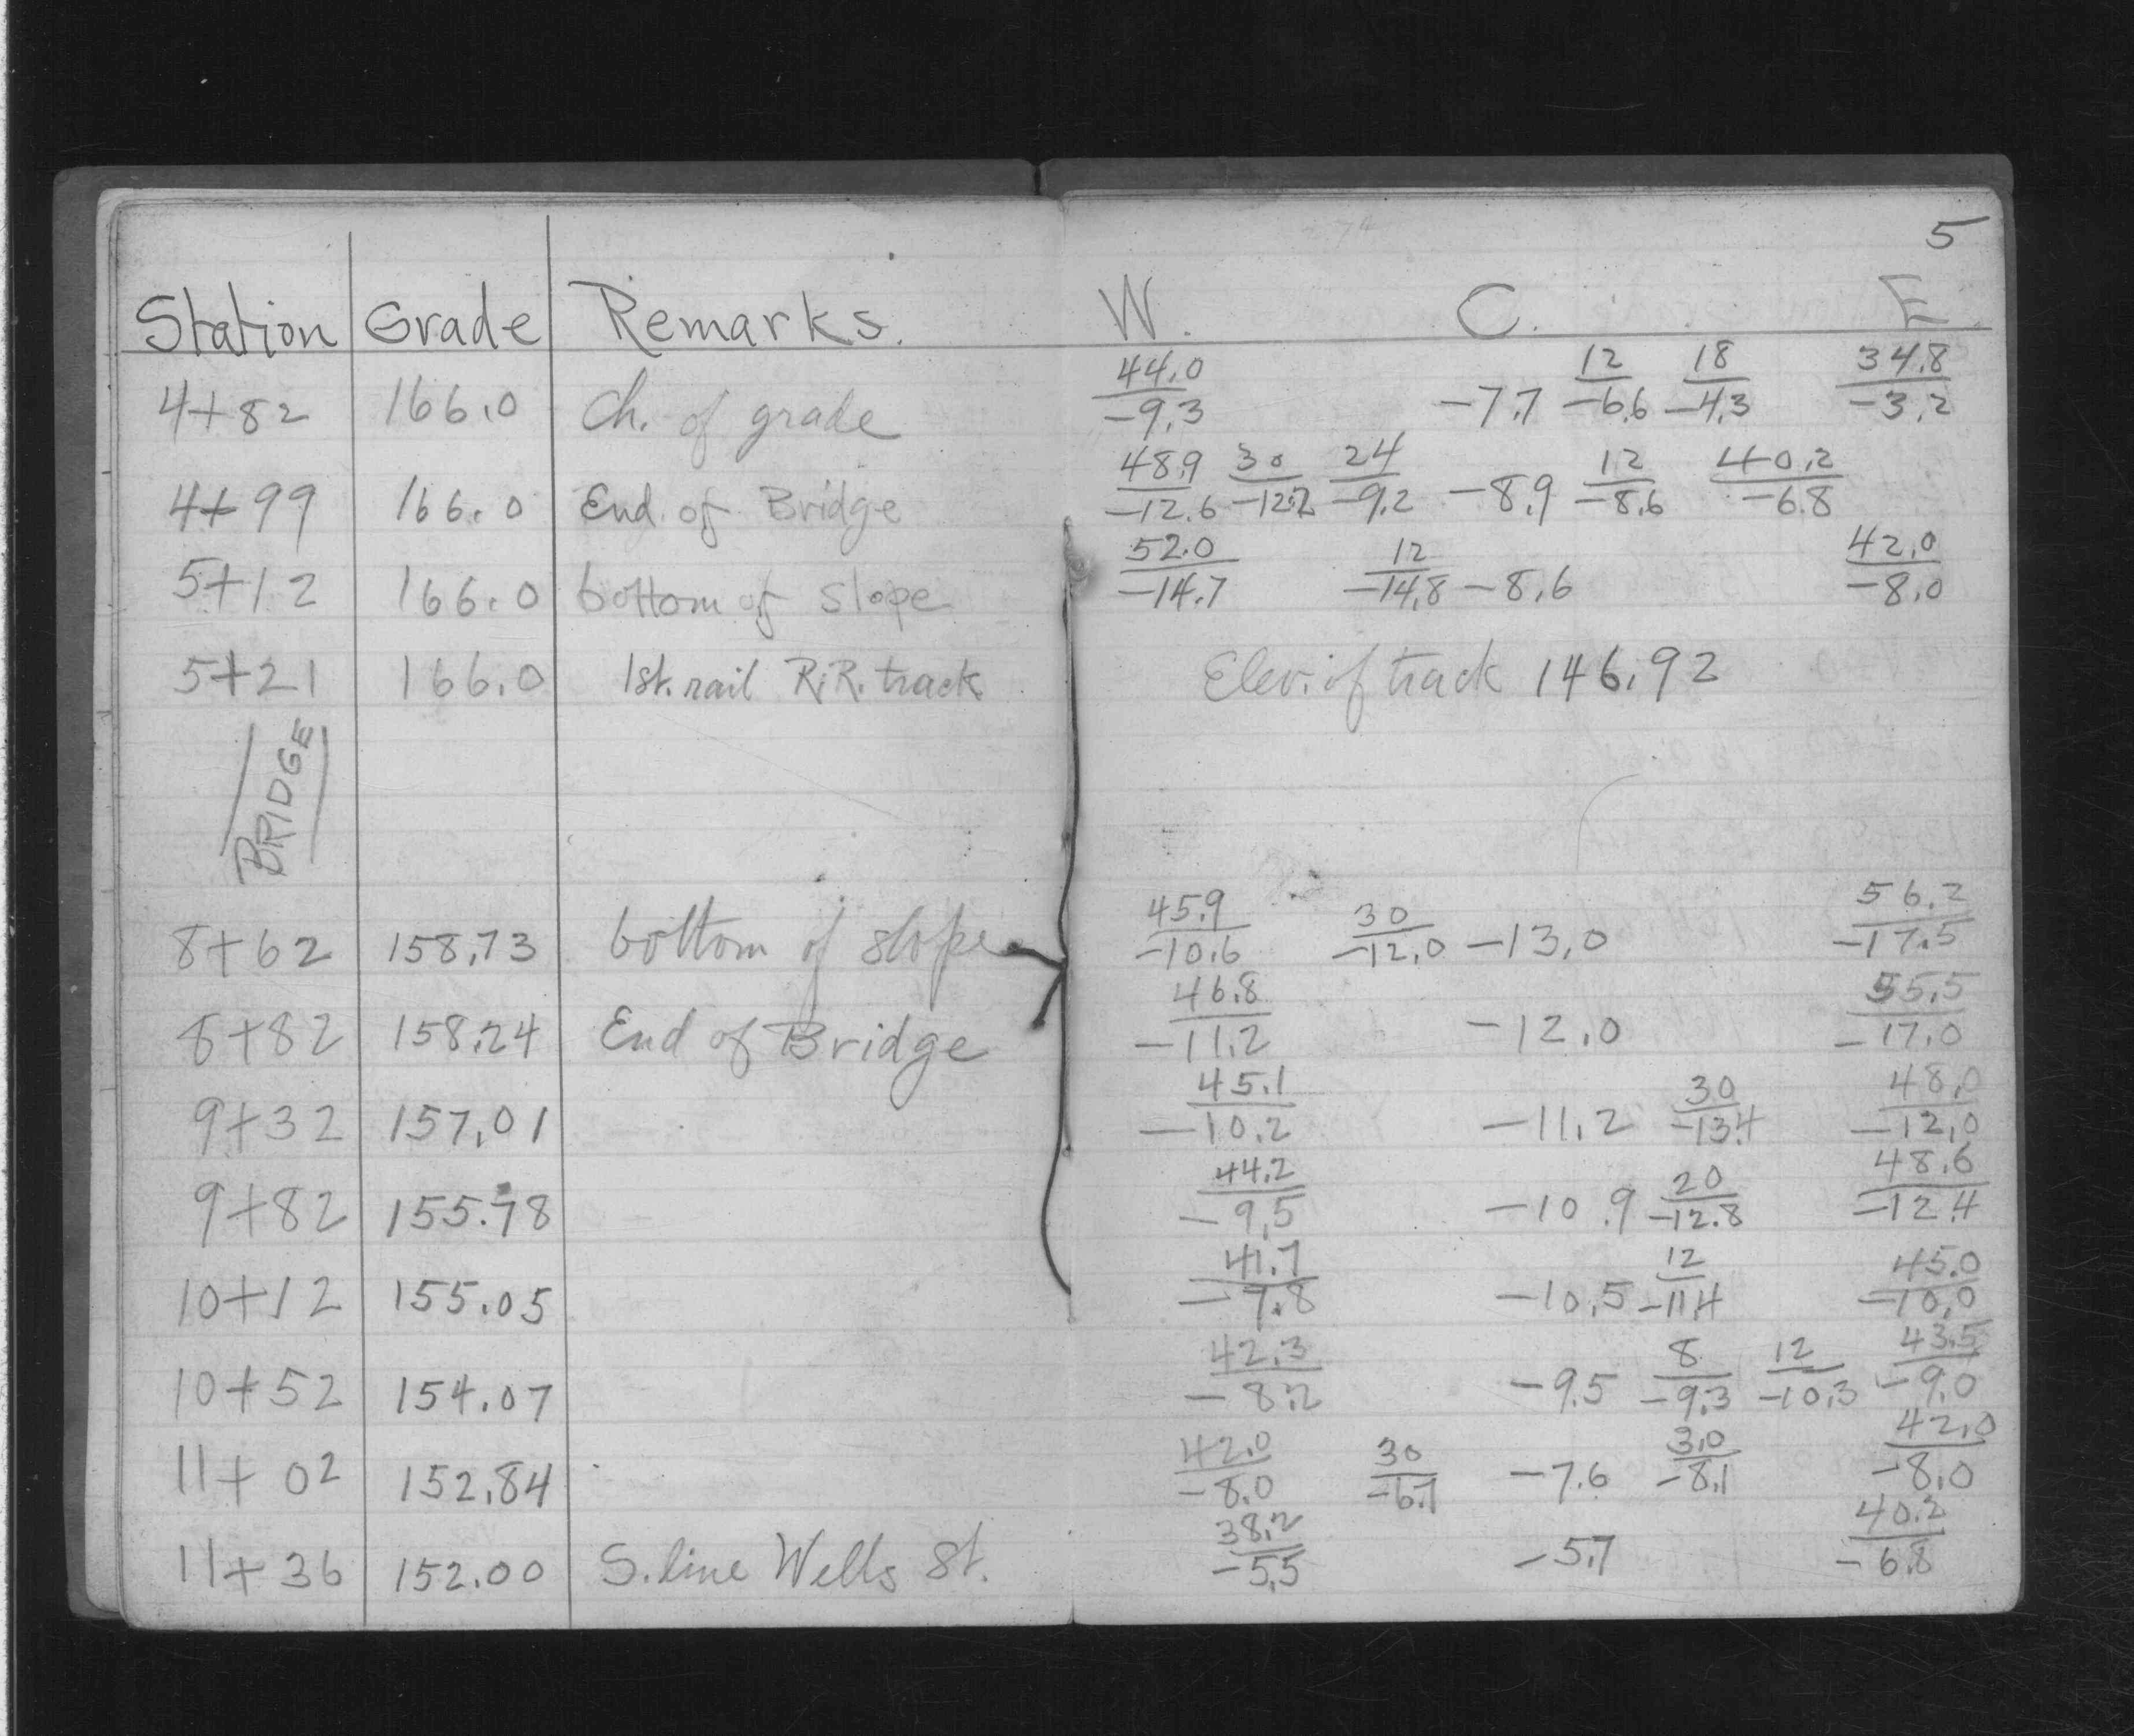 5
Station Grade Remarks. W. C. E.
4+82 166.0 Ch. of grade 44.0/-9.3 -7.7 12/-6.6 18/-4.3 34.8/-3.2
4+99 166.0 End of Bridge 48.9/-12.6 30/-12.2 24/-9.2 -8.9 12/-8.6 40.2/-6.8
5+12 166.0 bottom of slope 52.0/-14.7 12/-14.8 -8.6 42.0/-8.0
5+21 166.0 1st. rail R.R. track Elev. of track 146.92
BRIDGE
8+62 158.73 bottom of slope 45.9/-10.6 30/-12.0 -13.0 56.2/-17.5
8+82 158.24 End of Bridge 46.8/-11.2 -12.0 55.5/-17.0
9+32 157.01 45.1/-10.2 -11.2 30/-13.4 48.0/-12.0
9+82 155.78 44.2/-9.5 -10.9 20/-12.8 48.6/-12.4
10+12 155.05 41.7/-7.8 -10.5 12/-11.4 45.0/-10.0
10+52 154.07 42.3/-8.2 -9.5 8/-9.3 12/-10.3 43.5/-9.0
11+02 152.84 42.0/-8.0 30/-6.7 -7.6 30/-8.1 42.0/-8.0
11+36 152.00 S. line Wells St. 38.2/-5.5 -5.7 40.2/-6.8